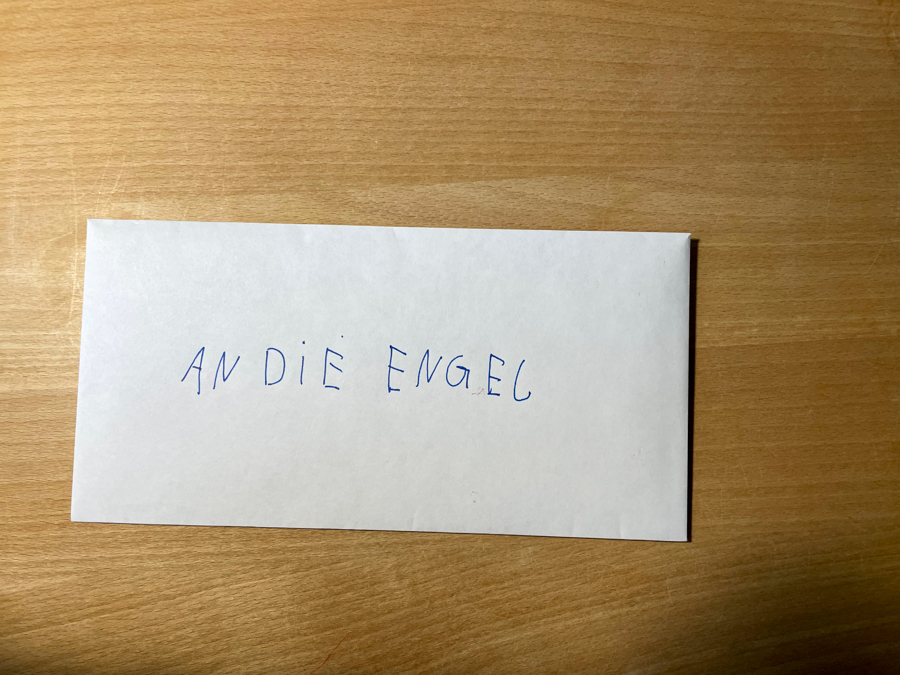 AN DiE ENGEL